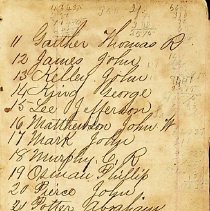 11 Gaither Thomas R
12 James John
13 Kelley John
14 King George
15 Lee Jefferson
16 Matthewson John W
17 Mark John
18 Murphy C. R
19 Osman Phillip
20 Pierce John
21 Potter Abraham